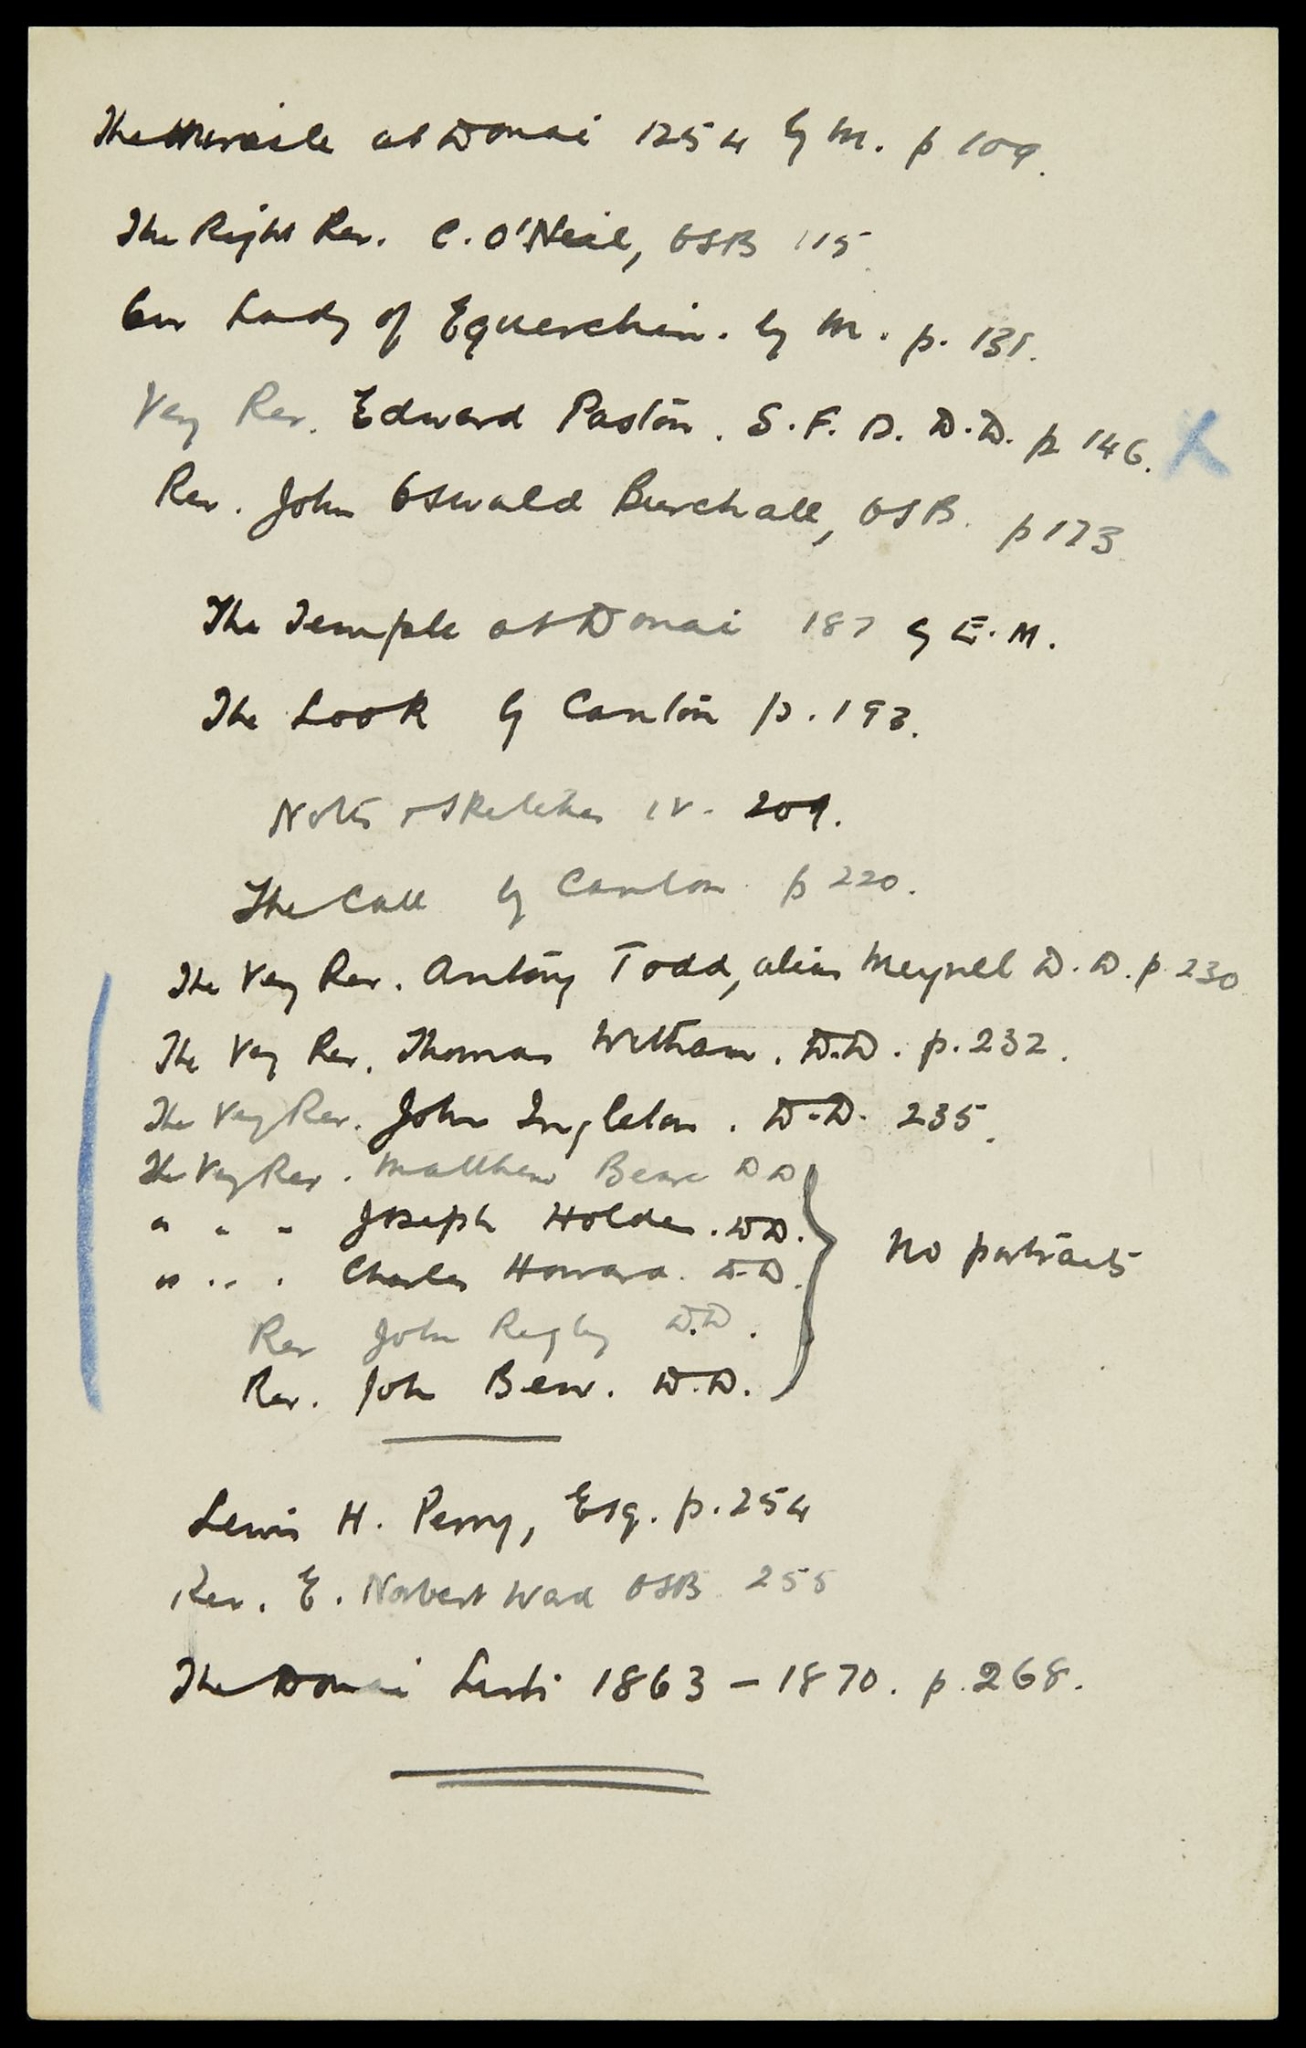 The Miracle at Douai 1254 by M. p 109.
The Right Rev. C. O'Neil, OSB 115.
Our Lady of Equerchin. by M. p. 131.
Very Rev. Edward Paston. S.F.D. D.D. p 146. X
Rev. John Oswald Burchall, OSB. p 173
The Temple at Douai 187 by E.M.
The Look by Canton p. 193.
Notes & Sketches IV. 209.
The Call by Canton p 220.
The Very Rev. Antony Todd, alias Meynell D.D. p. 230
The Very Rev. Thomas Witham. D.D. p. 232.
The Very Rev. John Ingleton. D.D. 235.
The Very Rev. Matthew Beare DD
" " " Joseph Holden. DD.
" " " Charles Howard. D.D.
No portraits
Rev John Rigby D.D.
Rev. John Bew. D.D.
Lewis H. Perry, Esq. p. 254
Rev. E. Norbert Ward OSB 255
The Douai Lists 1863 - 1870. p. 268.